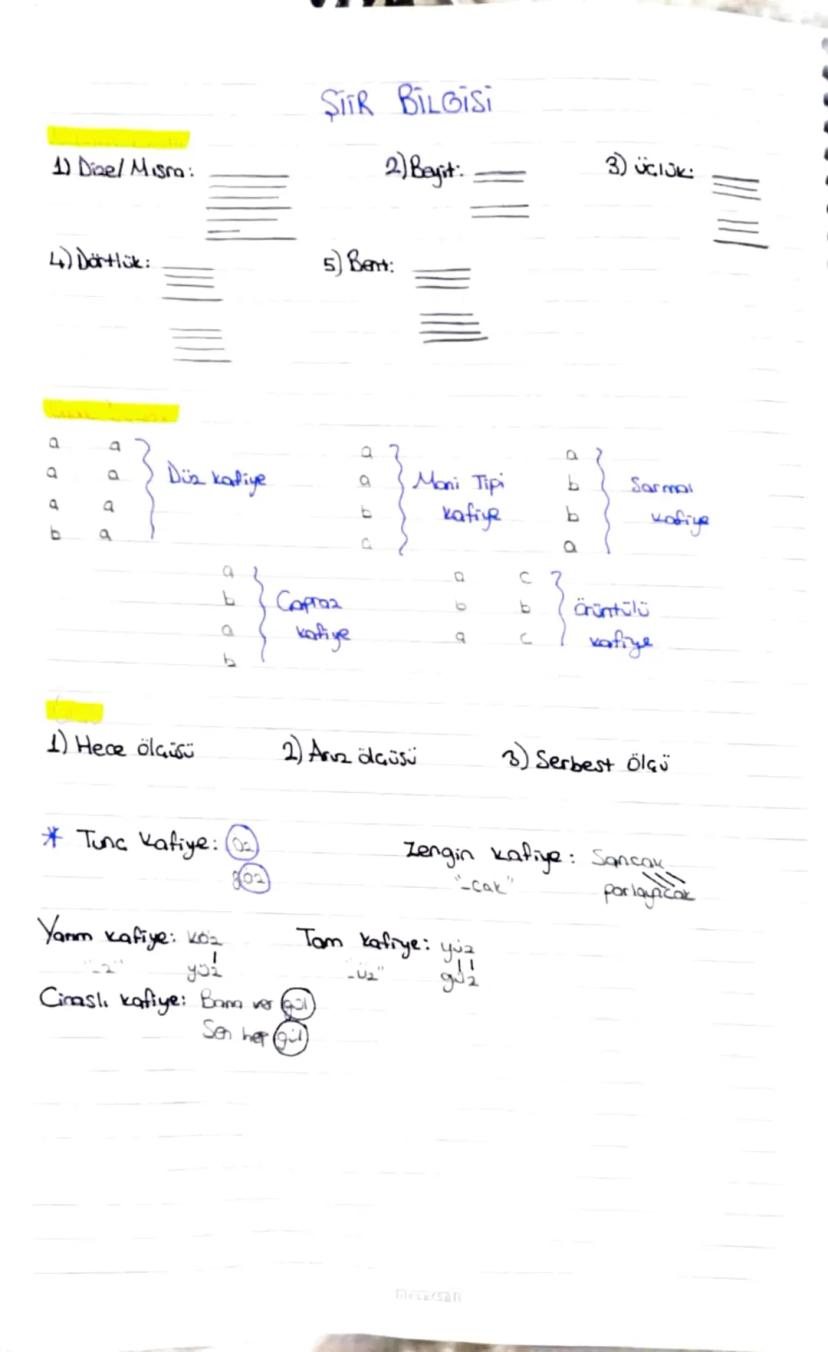 ŞİİR BİLGİSİ
1) Dize/Mısra: 2) Beyit: 3) Üçlük:
4) Dörtlük: 5) Bent:
a a a a
a a Düz kafiye a Mani Tipi b Sarmal
a a b kafiye b kafiye
b a c a
a a c
b Çapraz b b Örüntülü
a kafiye a c kafiye
b
1) Hece ölçüsü 2) Aruz ölçüsü 3) Serbest ölçü
* Tunç kafiye: öz Zengin kafiye: Sancak
göz "-cak" parlayacak
Yarım kafiye: köz Tam kafiye: yüz
"-z" yüz "-üz" güz
Cinaslı kafiye: Bana ver gül
Sen hep gül